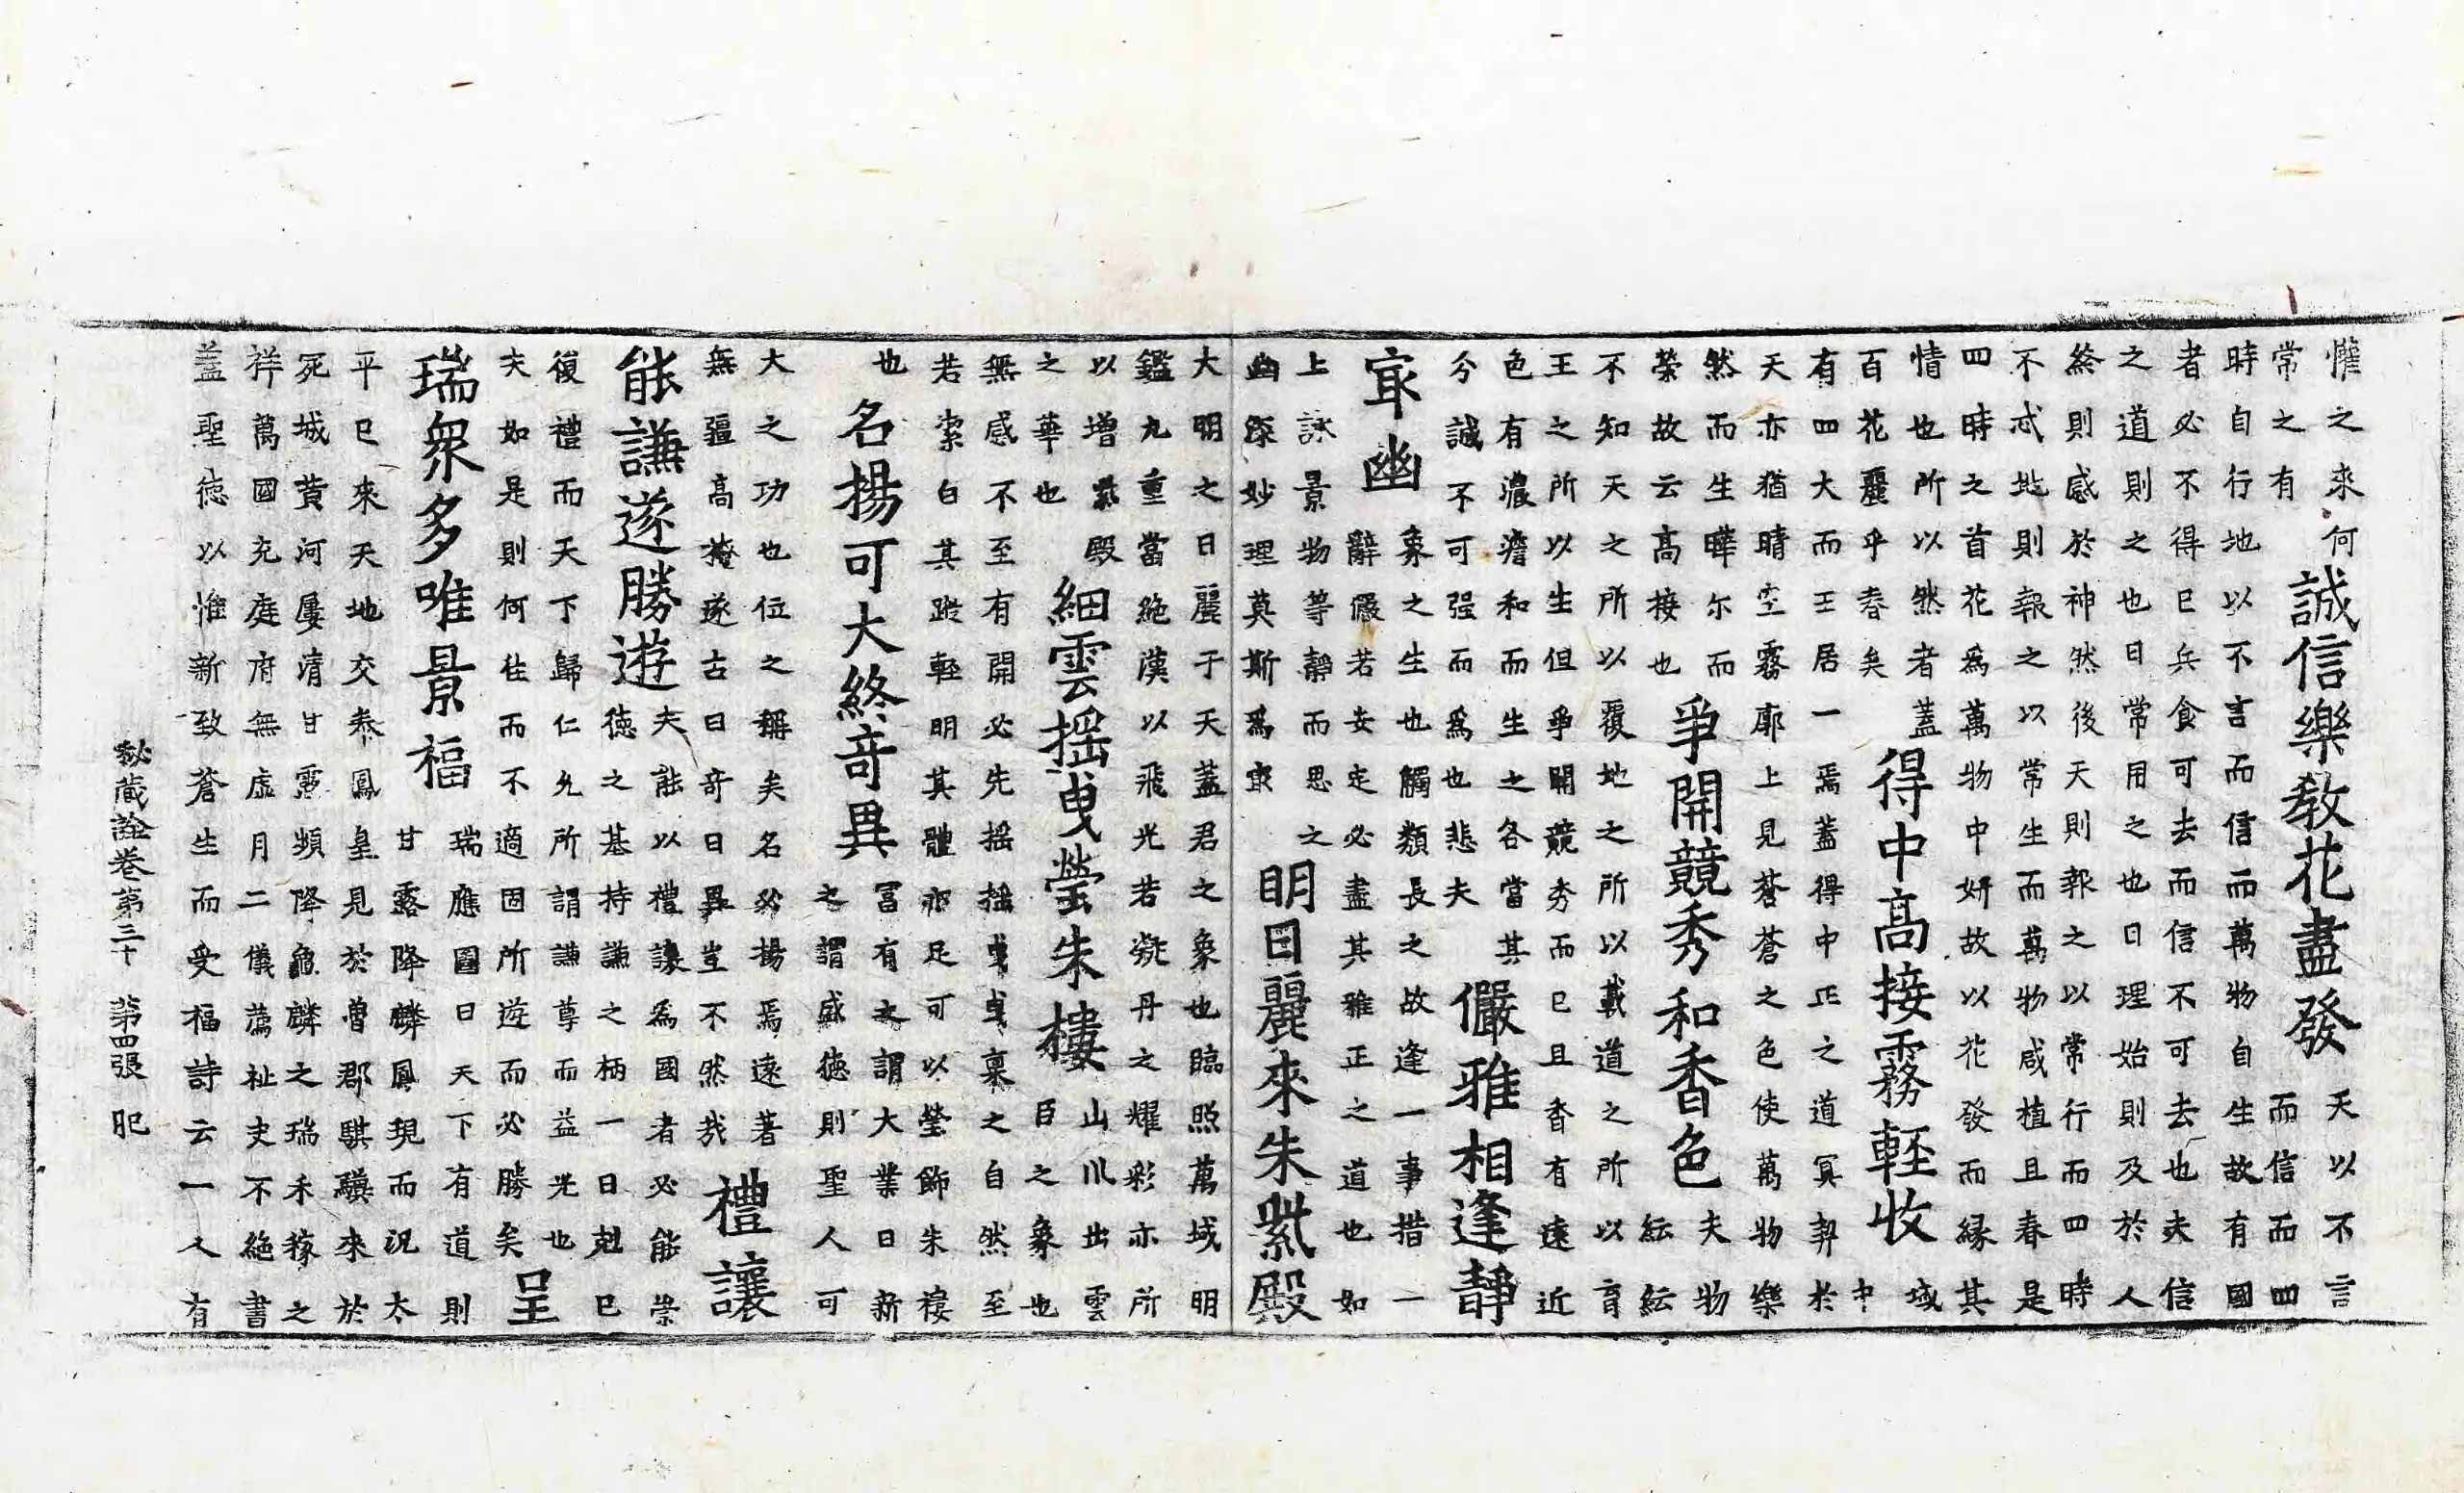 懽之来何
常之有
誠信樂教花盡發
天以不言
而信而四
時自行地以不言而信而萬物自生故有國
者必不得已兵食可去而信不可去也夫信
之道則之也曰常用之也曰理始則及於人
終則感於神然後天則報之以常行而四時
不忒地則報之以常生而萬物咸植且春是
四時之首花爲萬物中妍故以花發而緣其
情也所以然者蓋
百花麗乎春矣
得中高接霧輕收
域
中
有四大而王居一焉蓋得中正之道冥契於
天亦猶晴空霧廓上見蒼蒼之色使萬物樂
然而生曄尔而
榮故云高接也
爭開競秀和香色
夫物
紜紜
不知天之所以覆地之所以載道之所以育
王之所以生但爭開競秀而已且香有遠近
色有濃澹和而生之各當其
今誠不可强而爲也悲夫
儼雅相逢靜
㝡幽
象之生也觸類長之故逢一事措一
辭儼若安定必盡其雅正之道也如
上詠景物等靜而思之
幽深妙理莫斯爲㝡
明日麗來朱紫殿
大明之日麗于天蓋君之象也臨照萬域明
鑑九重當絶漢以飛光若凝丹之耀彩亦所
以增紫殿
之華也
細雲摇曳瑩朱樓
山川出雲
臣之象也
無感不至有開必先摇摇曳曳稟之自然至
若潔白其蹤輕明其體亦足可以瑩飾朱樓
也
名揚可大終竒異
富有之謂大業日新
之謂盛德則聖人可
大之功也位之稱矣名必揚焉遠著
無疆高蹤遂古曰竒曰異豈不然哉
禮讓
能謙遂勝遊
夫能以禮讓爲國者必能崇
德之基持謙之柄一日剋已
復禮而天下歸仁允所謂謙尊而益光也
夫如是則何往而不適固所遊而必勝矣
呈
瑞衆多唯景福
瑞應圖曰天下有道則
甘露降麟鳳現而況太
平已來天地交泰鳳皇見於曾郡騏驥來於
死城黄河屢清甘露頻降龜麟之瑞禾稼之
祥萬國充庭府無虛月二儀薦祉史不絶書
蓋聖德以惟新致蒼生而受福詩云一人有
秘藏詮卷第三十 第四張 昵